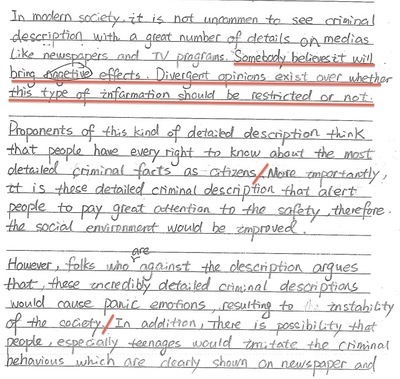 In modern society, it is not uncommen to see criminal
description with a great number of details on medias
like newspapers and TV programs. Somebody believes it will
bring nagetive effects. Divergent opinions exist over whether
this type of information should be restricted or not.
Proponents of this kind of detailed description think
that people have every right to know about the most
detailed criminal facts as citizens. More importantly,
it is these detailed criminal description that alert
people to pay great attention to the safety, therefore.
the social environment would be improved.
However, folks who are against the description argues
that, these incredibly detailed criminal descriptions
would cause panic emotions, resulting to instability
of the society. In addition, there is possibility that
people, especially teenages would imitate the criminal
behavious which are clearly shown on newspaper and